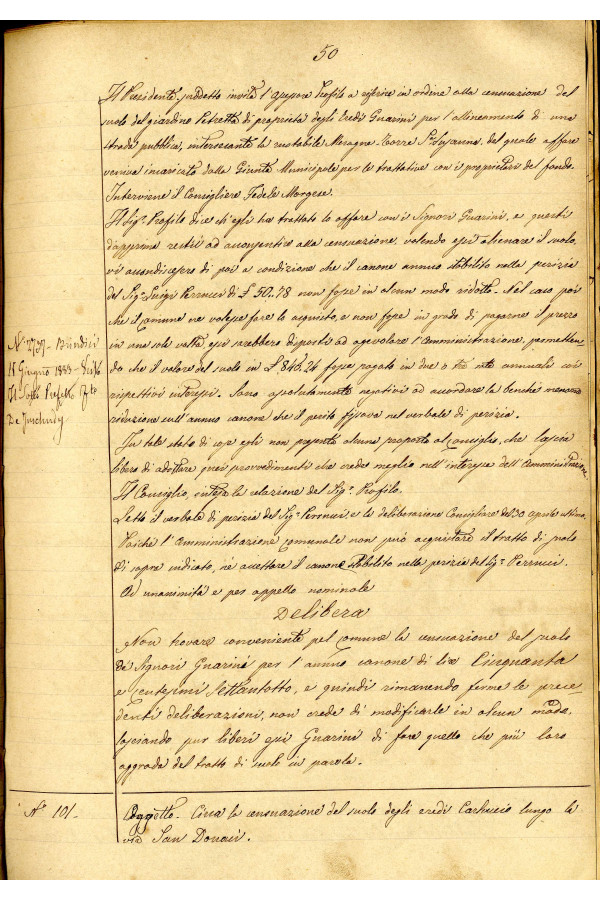 50
Il Presidente predetto invita l'Assessore Profilo a riferire in ordine alla censuazione del
suolo del giardino Petretta di proprietà degli Eredi Guarini per l'allineamento di una
strada pubblica, interessante la ruotabile Mesagne-Torre S. Susanna, del quale affare
veniva incaricato dalla Giunta Municipale per le trattative con i proprietari del fondo.
Interviene il Consigliere Fedele Morgese.
Il Sig. Profilo dice ch'egli ha trattato lo affare con i Signori Guarini, e questi
dapprima restii ad accconsentire alla censuazione, volendo essi alienare il suolo,
vi accondiscesero di poi a condizione che il canone annuo stabilito nella perizia
del Sig. Luigi Perrucci di £ 50.78 non fosse in alcun modo ridotto. Nel caso poi
che il Comune ne volesse fare lo acquisto, e non fosse in grado di pagarne il prezzo
in una sola volta, essi sarebbero disposti ad agevolare l'Amministrazione, permetten-
do che il valore del suolo in £ 846.24 fosse pagato in due o tre rate annuali coi
rispettivi interessi. Sono assolutamente negativi ad accordare la benchè menoma
riduzione sull'annuo canone che il perito fissava nel verbale di perizia.
In tale stato di cose egli non presenta alcuna proposta al Consiglio, che lascia
libero di adottare quei provvedimenti che crede meglio nell'interesse dell'Amministrazione.
Il Consiglio, intesa la relazione del Sig. Profilo.
Letto il verbale di perizia del Sig. Perrucci e la deliberazione Consiliare del 30 aprile ultimo,
Poiche l'Amministrazione comunale non può acquistare il tratto di suolo
di sopra indicato, nè accettare il canone stabilito nella perizia del Sig. Perrucci.
Ad unanimità e per appello nominale
Delibera
Non trovare conveniente pel Comune la censuazione del suolo
dei Signori Guarini per l'annuo canone di lire Cinquanta
e Centesimi Settantotto, e quindi rimanendo ferme le prece-
denti deliberazioni, non crede di modificarle in alcun modo,
lasciando pur liberi essi Guarini di fare quello che più loro
aggrada del tratto di suolo in parola.
Brindisi
18 Giugno 1889
Il Sotto Prefetto
N° 101-
Oggetto- Circa la censuazione del suolo degli eredi Carluccio lungo la
via San Donaci.